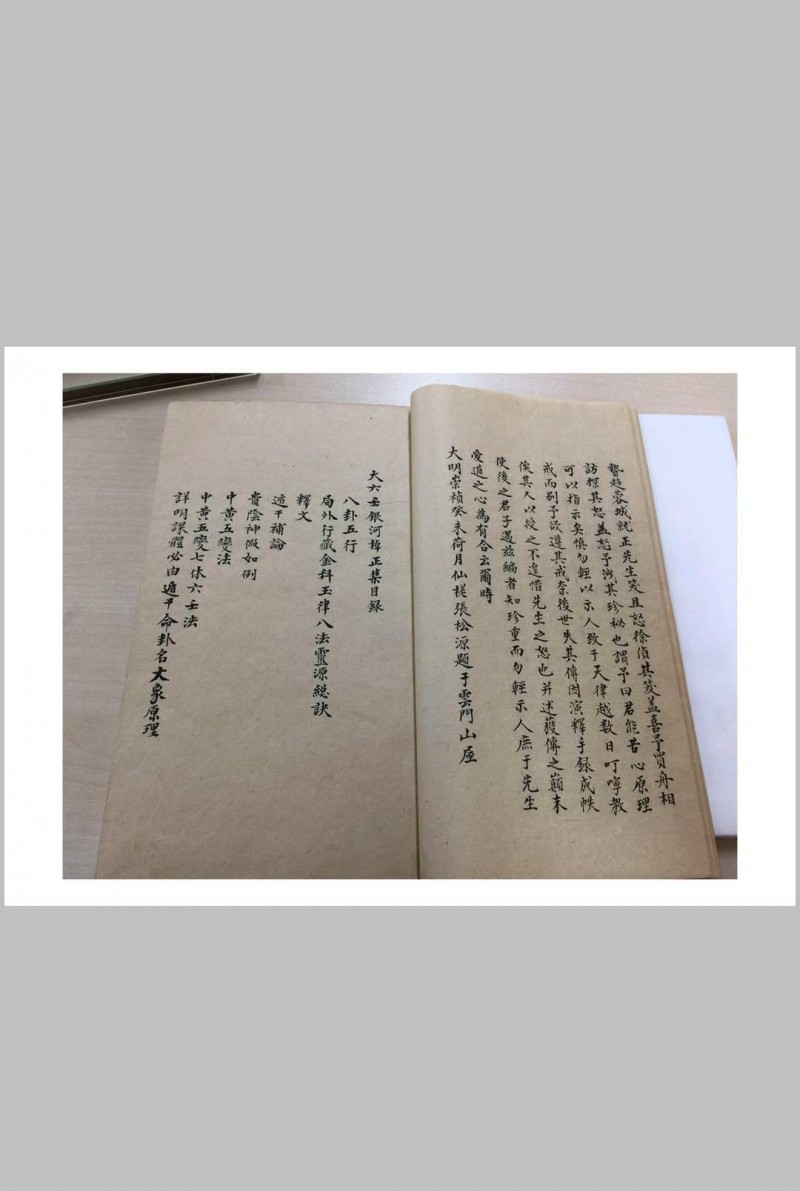 聱趋蓉城就正先生笑且怒徐偵其笑蓋喜予買舟相
訪探其怒蓋怒予洩其珍秘也謂予曰君能苦心原理
可以指示矣慎勿輕以示人致于天律越数日叮嚀教
戒而别予欲遵其戒奈後世失其傳因演釋手録成帙
俟其人以授之不遑惜先生之怒也并述獲傳之巔末
使後之君子遇兹編者知珍重而勿輕示人庶于先生
愛道之心為有合云爾時
大明崇禎癸未荷月仙槎張松源題于雲門山屋
大六壬銀河棹正集目録
八卦五行
局外行藏金科玉律八法靈源総訣
釋文
遁干補論
貴陰神假如例
中黄五變法
中黄五變七休六壬法
詳明課體必由遁干命卦名大象原理